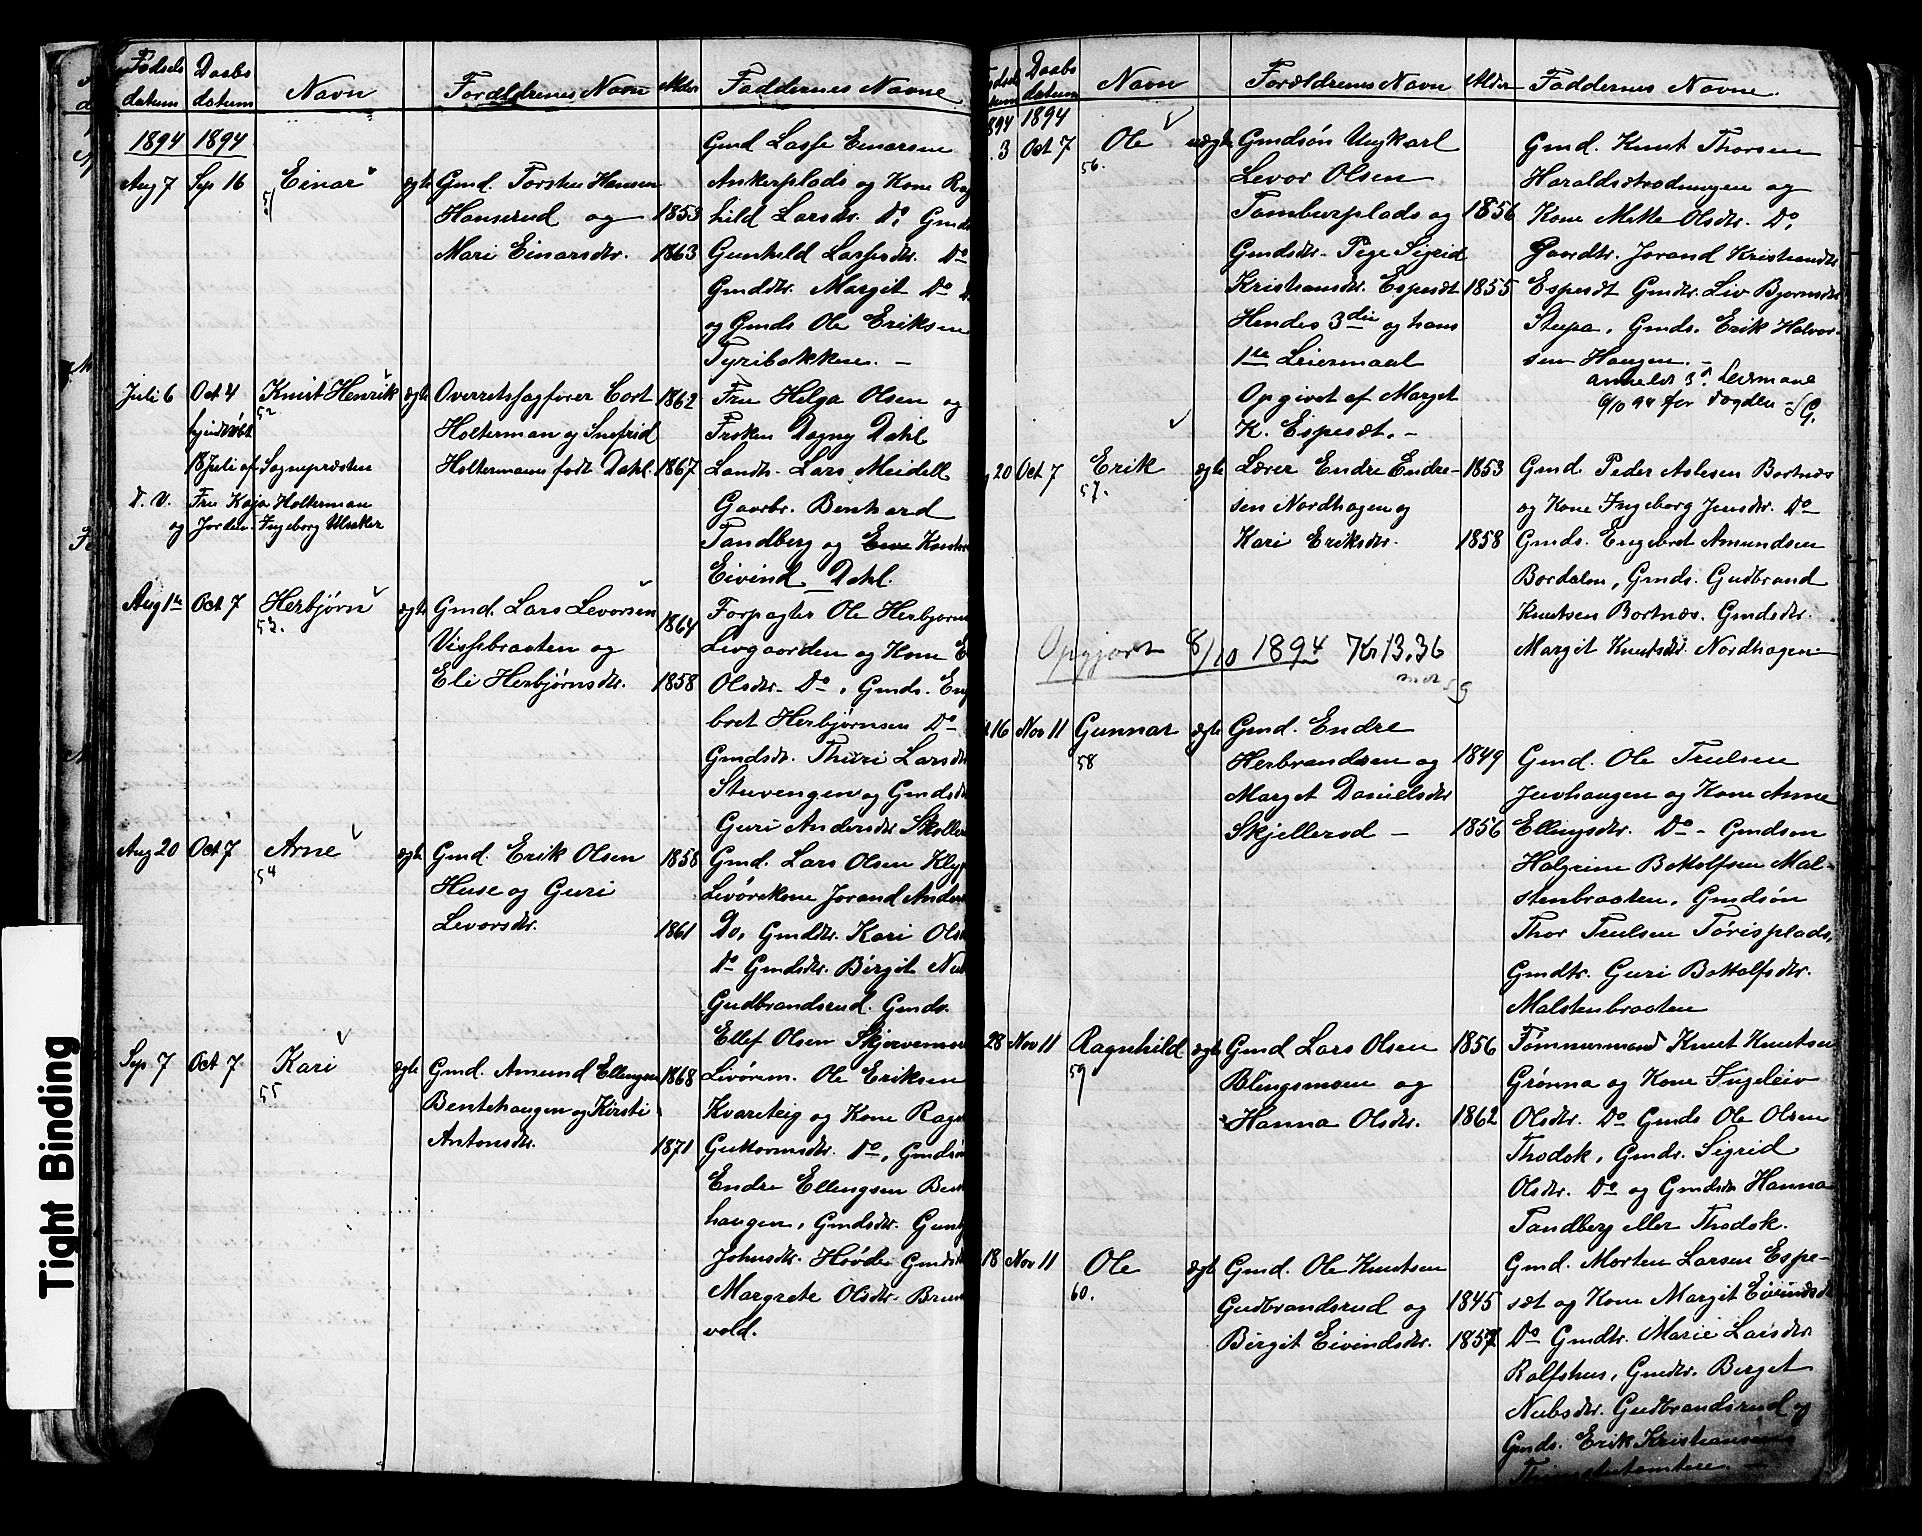 Fødsels datum | Daabs datum | Navn | Forældrenes Navn | Alder | Faddernes Navne
1894 | 1894
Aug 7 | Sep 16 | Einar | ægte | Gmd. Torsten Hansen
51
Hanserud og | 1853
Mari Einarsdtr. | 1863
Gmd Lasse Einarsen
Ankerplads og Kone Rag
hild Larsdr. Do Gmds
Gunhild Lassesdtr. Do
Gmddtr. Margit Do
og Gmds Ole Eriksen
Tyribakken. –
Juli 6 | Oct 4 | Knut Henrik | ægte | Overretssagfører Cort | 1862
52
hjemdøbt
18 Juli af Sognepræsten
F. V. Fru Kaja Holterman
og Jordm. Ingeborg Ulsaker
Holterman og Snefrid
Holtermann født Dahl. | 1867
Fru Helga Olsen og
Frøken Dagny Dahl
Landh. Lars Meidell
Gaarbr. Benhard
Tandberg og
Eivind Dahl.
Aug 1te | Oct 7 | Herbjørn | ægte | Gmd. Lars Levorsen | 1864
53.
Vissbraaten og
Eli Herbjørnsdtr. | 1858
Forpagter Ole Herbjørns
Livgaarden og Kone E
Olsdtr. Do, Gmds. Eng
bret Herbjørnsen Do
Gmdsdr. Thuri Larsdtr
Stuvengen og Gmdsdt
Guri Andersdtr Skolle
Aug 20 | Oct 7 | Arne | ægte | Gmd. Erik Olsen | 1858
54
Huse og Guri
Levorsdtr. | 1861
Gmd. Lars Olsen Klyp
Livørekone Jorand Anders
Do, Gmddtr. Kari Ols
Do Gmdsdtr. Birgit Nu
Gudbrandsrud. Gmds.
Ellef Olsen Skjervemo
Sep 7 | Oct 7. | Kari | ægte | Gmd. Amund Ellingsen | 1868
55
Bentehaugen og Kirsti
Antonsdtr. | 1871
Livørem. Ole Eriksen
Kvarteig og Kone Ragn
Guttormsdtr. Do, Gmdsøn
Endre Ellingsen Bent
haugen, Gmdsdtr. Gunh
Johnsdtr. Høvde Gmdsd
Margrete Olsdtr. Brun
vold.
Daabs datum | Navn | Forældrenes Navn | Alder | Faddernes Navne.
894 | 1894
3 | Oct 7 | Ole | uægte | Gmdsøn Ungkarl
56.
Levor Olsen
Tamburplads og | 1856
Gmdsdtr. Pige Sigrid
Kristiansdtr. Espesæt | 1855
Hendes 3die og hans
1te Leiermaal
Opgivet af Marget
K. Espesæt. –
Gmd. Knut Thorsen
Haraldstrødningen og
Kone Mette Olsdtr. Do,
Gaardtr. Jorand Kristiansdtr
Espesæt Gmdtr. Liv Bjørnsdtr
Stupa, Gmds. Erik Halvor-
sen Haugen. –
anmeldt 3d Leiermaal
9/10 94 for Fogden – G.
20 | Oct 7 | Erik | ægte | Lærer Endre Endre- | 1853
57.
sen Nordhagen og
Kari Eriksdtr. | 1858
Gmd. Peder Aslesen Bortnæs
og Kone Ingeborg Jensdtr. Do
Gmds. Engebret Amundsen
Bordalen, Gmds. Gudbrand
Knutsen Bortnæs. Gmdsdtr.
Margit Knutsdtr Nordhagen
Opgjort 8/10 1894 Kr 13.36
16 | Nov 11 | Gunnar | ægte | Gmd. Endre
58
Herbrandsen og | 1849
Marget Danielsdtr
Skjellerud – | 1856
Gmd. Ole Trulsen
Juvhaugen og Kone Anne
Ellingsdtr. Do – Gmdsøn
Halgrim Bottolfsen Mal-
stenbraaten, Gmdsøn
Thor Trulsen Tørisplads,
Gmdtr. Guri Bottolfsdtr.
Malstenbraaten
28 | Nov 11 | Ragnhild | ægte | Gmd Lars Olsen | 1856
59
Blingsmoen og
Hanna Olsdtr. | 1862
Tømmermand Knut Knutsen
Grønna og Kone Ingeleiv
Olsdtr. Do Gmds Ole Olsen
Thodok, Gmdr. Sigrid
Olsdtr. Do og Gmdsdtr Hanna
Tandberg eller Thodok.
18 | Nov 11 | Ole | ægte | Gmd. Ole Knutsen
60.
Gudbrandsrud og | 1845
Birgit Eivindsdtr. | 1857
Gmd. Morten Larsen Espe-
sæt og Kone Margit Eivindsdt
Do Gmdtr. Marie Larsdtr
Rolfshus, Gmdtr. Berget
Nubsdtr. Gudbrandsrud og
Gmds. Erik Kristiansens
Tight Binding